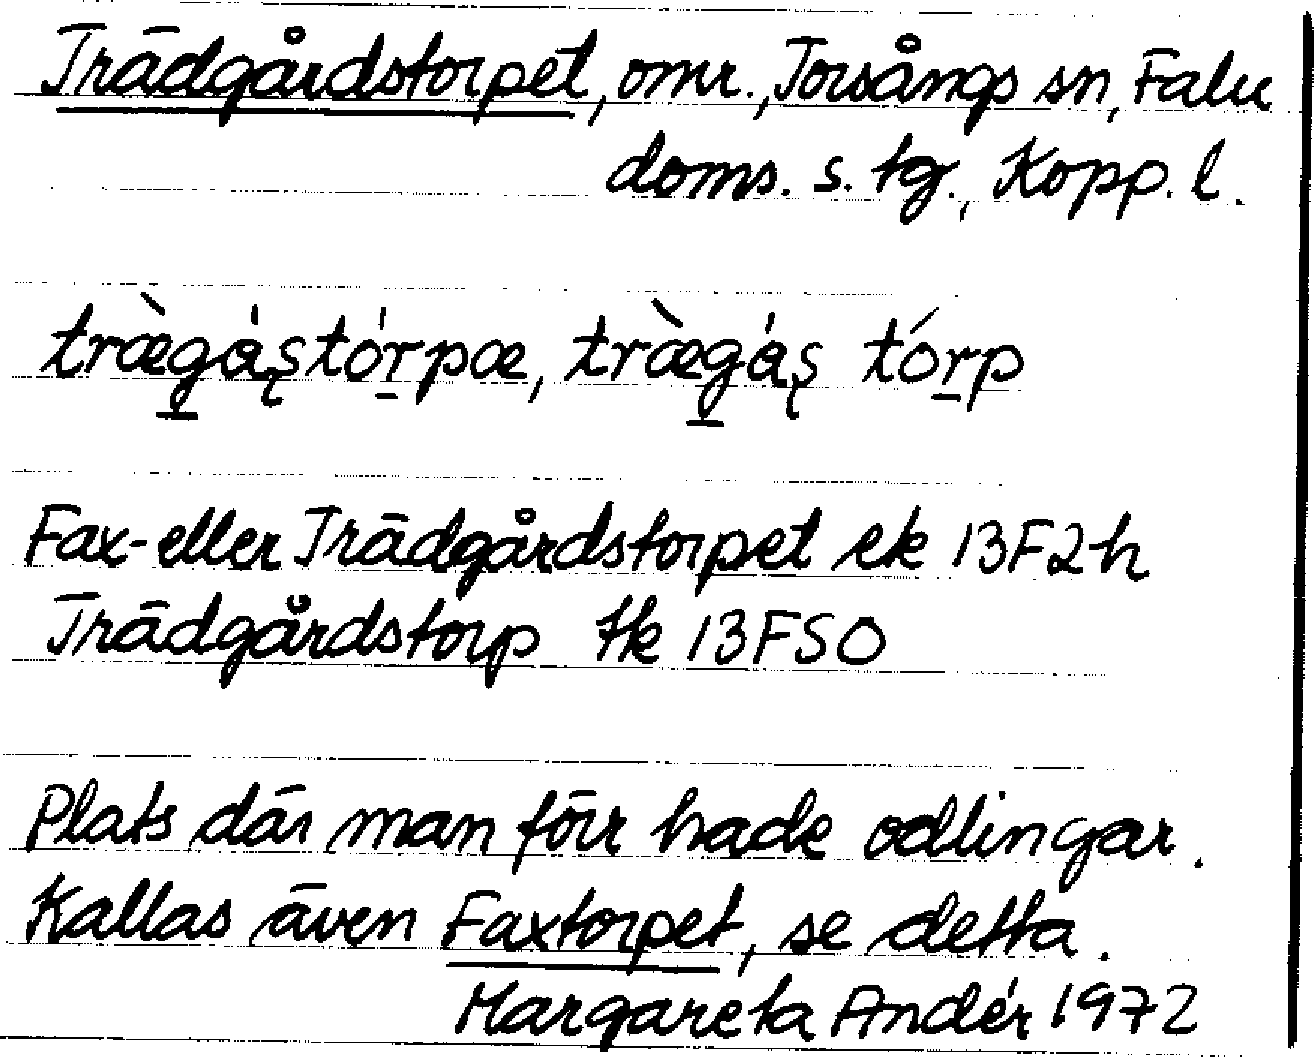 Trädgårdstorpet, omr., Torsångs sn, Falu
doms. s. tg., Kopp. l.
træ̀g̲á̤ʂtór̲pæ, træ̀g̲áʂ tór̲p
Fax- eller Trädgårdstorpet ek 13F2h
Trädgårdstorp tk 13FSO
Plats där man förr hade odlingar.
Kallas även Faxtorpet, se detta.
Margareta Andér 1972